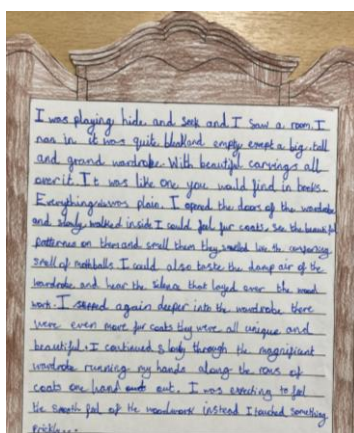 I was playing hide and seek and I saw a room. I
ran in it was quite bleak and empty exept a big, tall
and grand wardrobe. With beautiful carvings all
over it. It was like one you would find in books.
Everything was plain. I opend the doors of the wardrobe
and slowly walked inside I could feel fur coats, see the beautiful
patternes on them and smell them they smelled like the
smell of mothballs I could also taste the damp air of the
wardrobe and hear the silence that layed over the wood
work. I stepped again deeper into the wardrobe there
were even more fur coats they were all unique and
beautiful. I continued slowly through the magnificent
wardrobe running my hands along the rows of
coats one hand out. I was expecting to feel
the smooth feel of the woodwork instead I touched something
prickly...